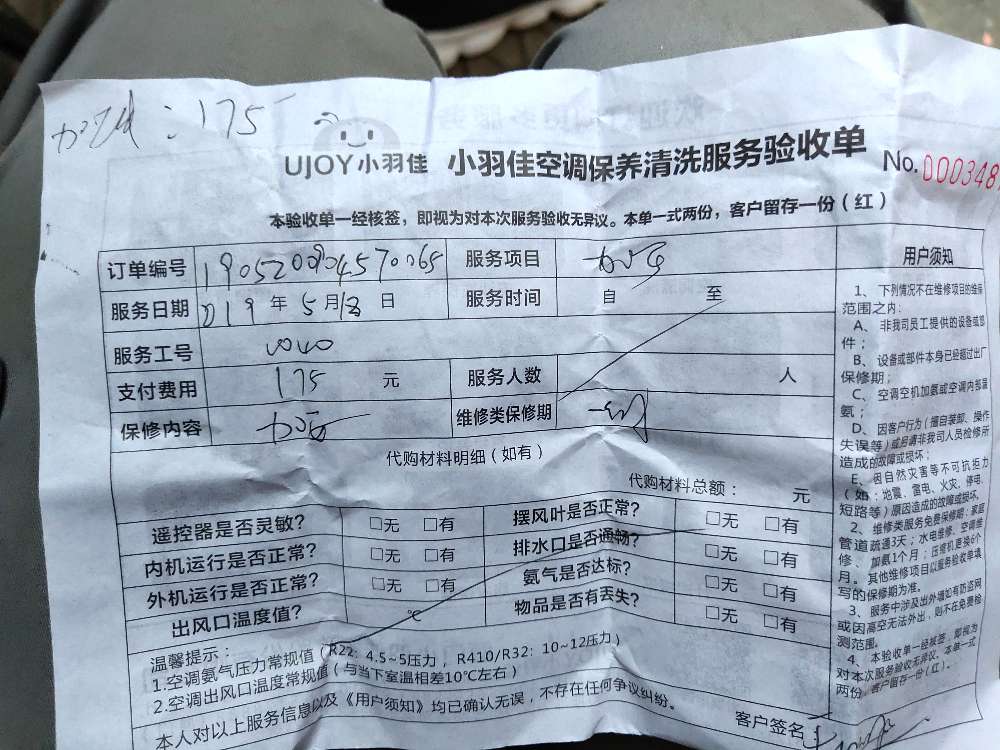 :175
UJOY小羽佳 小羽佳空调保养清洗服务验收单 No.000348
本验收单一经核签，即视为对本次服务验收无异议。本单一式两份，客户留存一份（红）
订单编号 服务项目
服务日期 019年5月 日 服务时间 自 至
服务工号
支付费用 175 元 服务人数 人
保修内容 维修类保修期
代购材料明细（如有）
代购材料总额： 元
遥控器是否灵敏？ □无 □有 摆风叶是否正常？ □无 □有
内机运行是否正常？ □无 □有 排水口是否通畅？ □无 □有
外机运行是否正常？ □无 □有 氨气是否达标？ □无 □有
出风口温度值？ ℃ 物品是否有丢失？ □无 □有
温馨提示：
1.空调氨气压力常规值（R22：4.5~5压力，R410/R32：10~12压力）
2.空调出风口温度常规值（与当下室温相差10℃左右）
本人对以上服务信息以及《用户须知》均已确认无误，不存在任何争议纠纷。
客户签名
用户须知
1、下列情况不在维修项目的维保
范围之内：
A、非我司员工提供的设备或部
件；
B、设备或部件本身已经超过出厂
保修期；
C、空调空机加氨或空调内部漏
氨；
D、因客户行为（擅自装卸、操作
失误等）或启请非我司人员检修所
造成的故障或损坏；
E、因自然灾害等不可抗拒力
（如：地震、雷电、火灾、停电、
短路等）原因造成的故障或损坏。
2、维修类服务免费保修期：家庭
管道疏通3天；水电维修、空调维
修、加氨1个月；压缩机更换6个
月。其他维修项目以服务验收单填
写的保修期为准。
3、服务中涉及出外墙如有防盗网
或因高空无法外出，则不在免费检
测范围。
4、本验收单一经核签，即视为
对本次服务验收无异议。本单一式
两份，客户留存一份（红）。